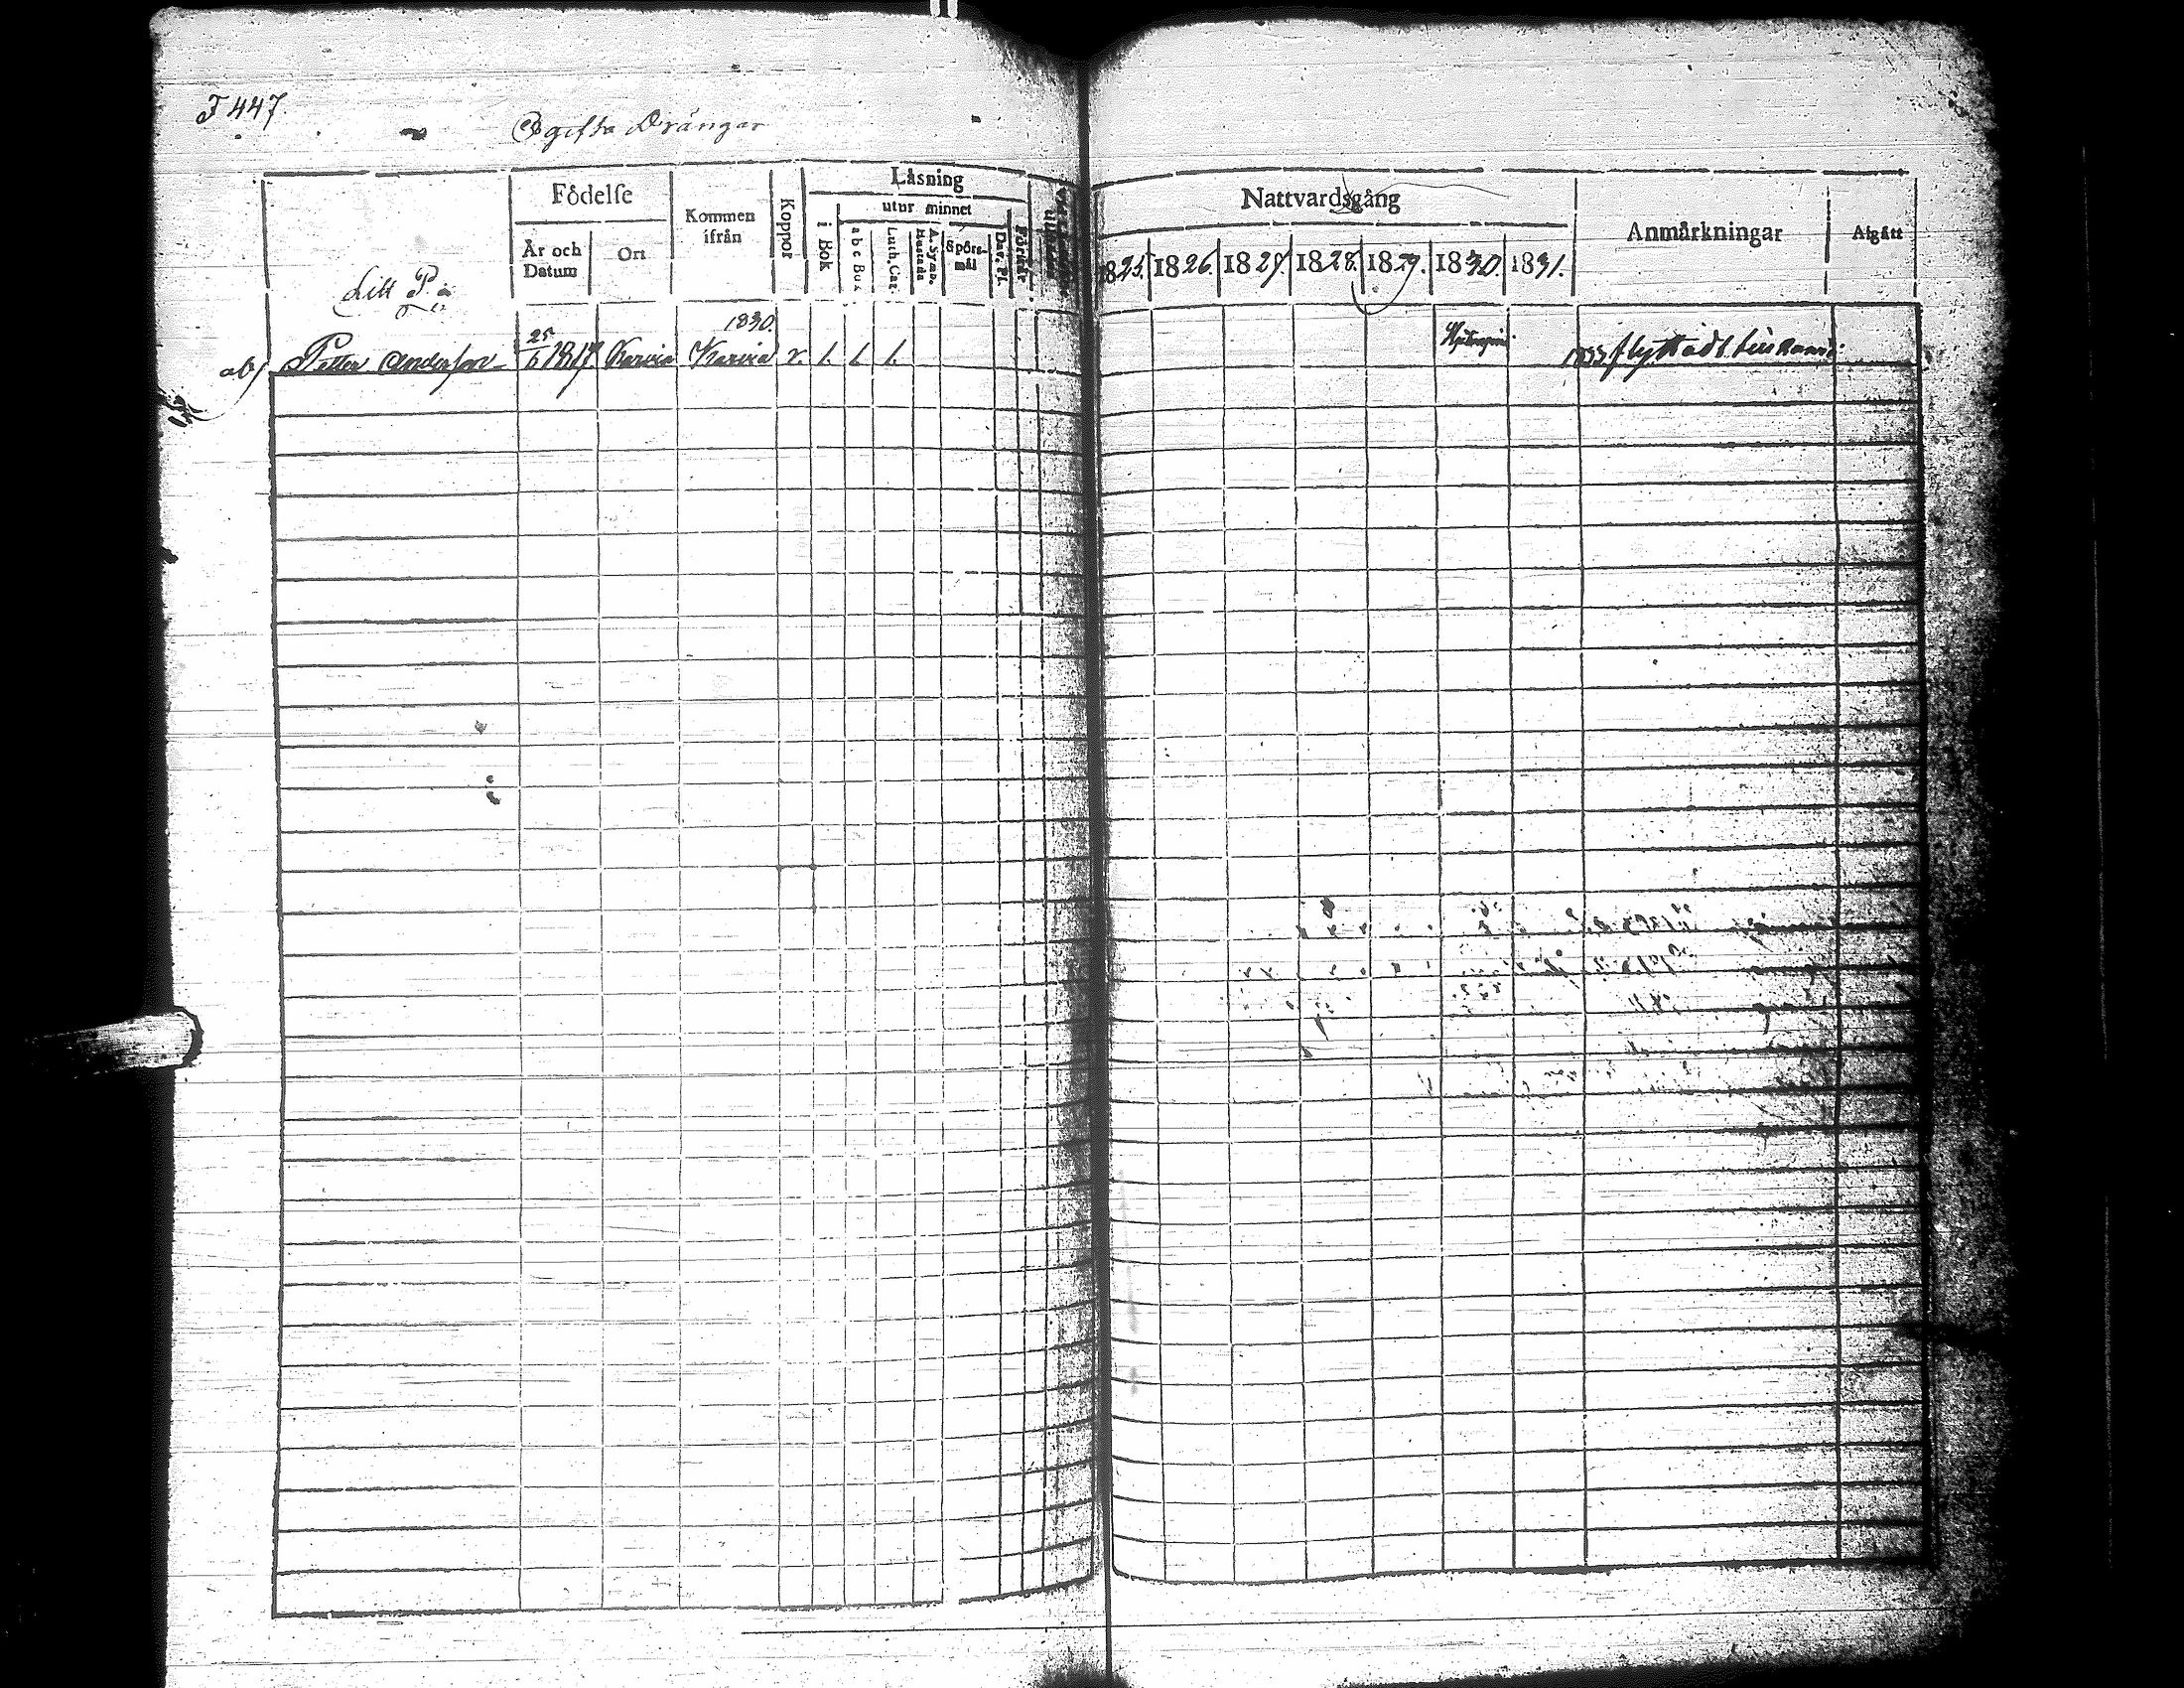 T 447.
Ogifta Drängar
Litt P.
Födelse
År och Datum
Ort
Kommen ifrån
Koppor
Läsning
i Bok
utur minnet
a b c Bok
Luth. Cat.
A. Symb. Hustafla
Spörsmål
Dav. Ps.
Förstår
Nattvardsgång
1825. 1826. 1827. 1828. 1829. 1830. 1831.
Anmärkningar
Afgått
ab/ Petter Andersson 25/6 1817. Karvia 1830. Karvia v. 1. 1. 1.
1833 flyttadt till